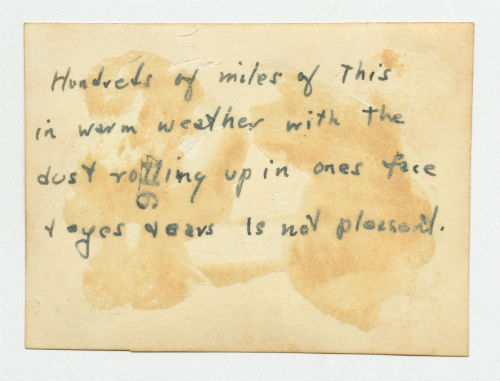 Hundreds of miles of This
in warm weather with the
dust rolling up in ones face
+ eyes + ears is not pleasant.